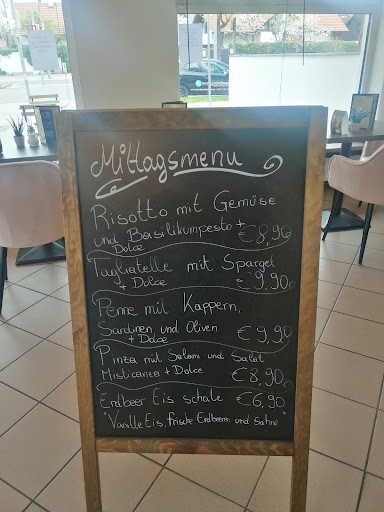 Mittagsmenu
Risotto mit Gemüse
und Basilikumpesto +
Dolce €8,90
Tagliatelle mit Spargel
+ Dolce €9,90
Penne mit Kappern,
Sardinen und Oliven
+ Dolce €9,90
Pinza mit Salami und Salat
Misticanza + Dolce €8,90
Erdbeer Eis schale €6,90
"Vanille Eis, frische Erdbeeren und Sahne"